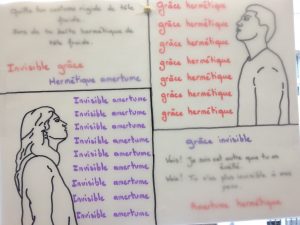 Quitte ton costume rigide de tôle
fluide.
Sors de ta boîte hermétique de
tôle fluide.
Invisible grâce
Hermétique amertume
grâce hermétique
grâce hermétique
grâce hermétique
grâce hermétique
grâce hermétique
grâce hermétique
grâce hermétique
grâce hermétique
Invisible amertume
Invisible amertume
Invisible amertume
Invisible amertume
Invisible amertume
Invisible amertume
Invisible amertume
Invisible amertume
Invisible amertume
Invisible amertume
grâce invisible
Vois! Je suis est autre que tu as
Vois! Tu n'es plus invisible à mes
Amertume hermétique